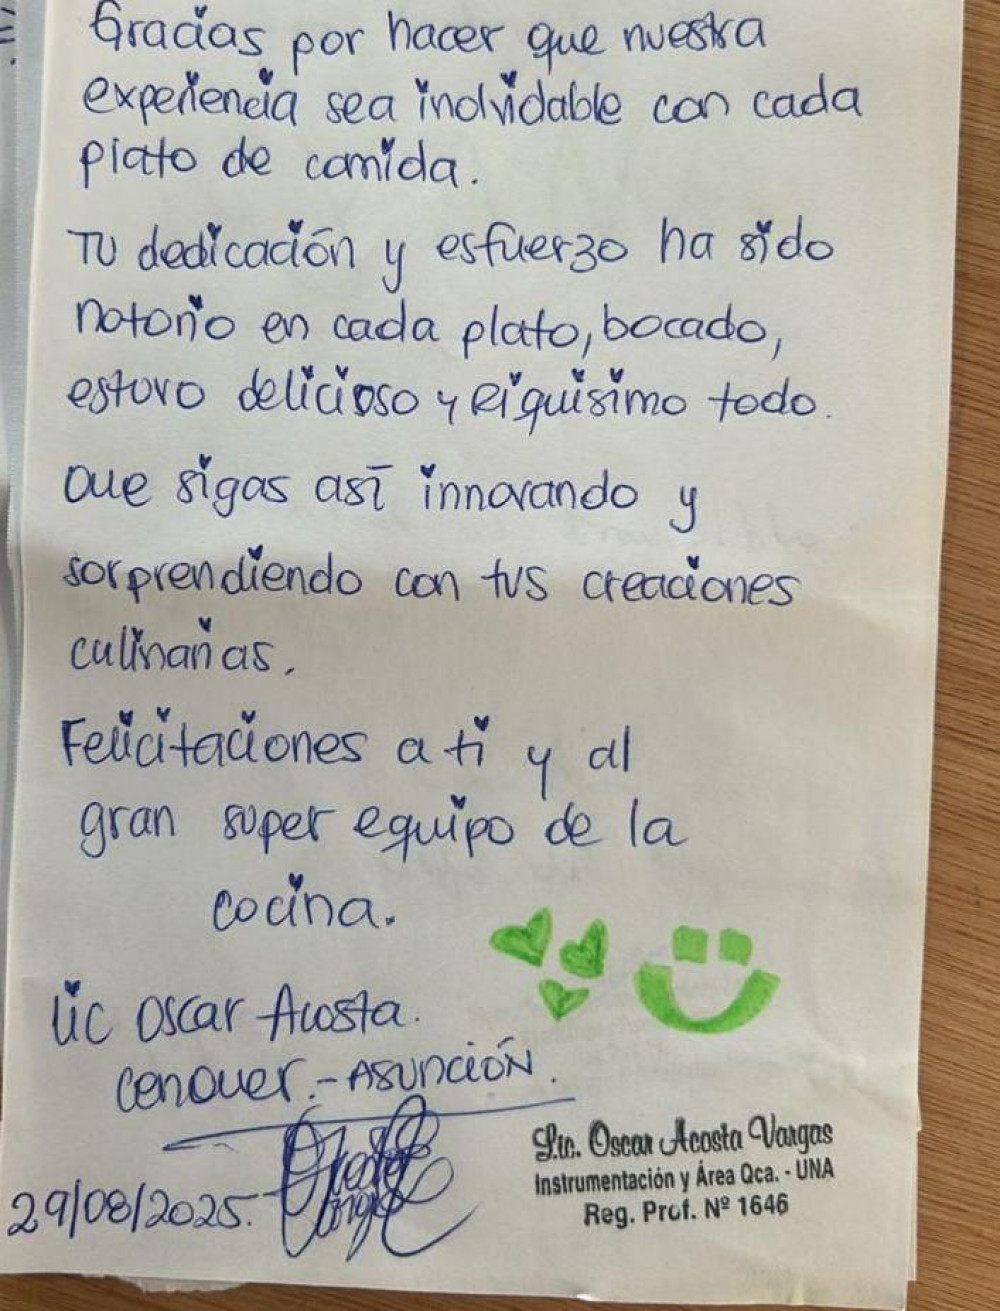 Gracias por hacer que nuestra
experiencia sea inolvidable con cada
plato de comida.
Tu dedicación y esfuerzo ha sido
notorio en cada plato, bocado,
estuvo delicioso y riquisimo todo.
Que sigas así innovando y
sorprendiendo con tus creaciones
culinarias.
Felicitaciones a ti y al
gran super equipo de la
cocina.
Lic Oscar Acosta.
Cenquer.-Asunción.
29/08/2025.
Lic. Oscar Acosta Vargas
Instrumentación y Área Qca. - UNA
Reg. Prof. Nº 1646